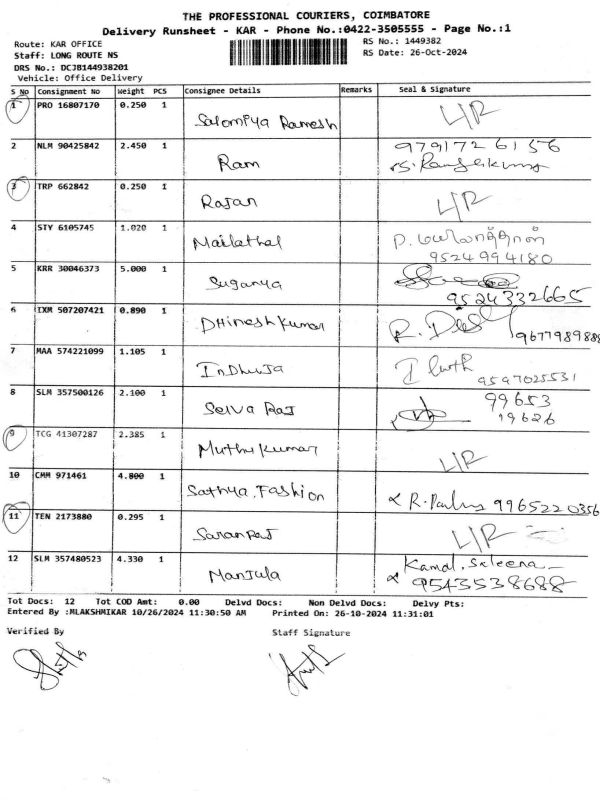 THE PROFESSIONAL COURIERS, COIMBATORE
Delivery Runsheet - KAR - Phone No.:0422-3505555 - Page No.:1
Route: KAR OFFICE
RS No.: 1449382
Staff: LONG ROUTE NS
RS Date: 26-Oct-2024
DRS No.: DCJB144938201
Vehicle: Office Delivery
S No Consignment No Weight PCS Consignee Details Remarks Seal & Signature
1 PRO 16807170 0.250 1 Salomiya Ramesh L/R
2 NLM 90425842 2.450 1 Ram 9791726156
3 TRP 662842 0.250 1 Rajan L/R
4 STY 6105745 1.020 1 Mailathal P. மயிலாத்தாள்
9524994180
5 KRR 30046373 5.000 1 Suganya
9524332665
6 IXM 507207421 0.890 1 Dhinesh Kumar 9677989888
7 MAA 574221099 1.105 1 Indhuja 9597025531
8 SLM 357500126 2.100 1 Selva Raj 99653
19626
9 TCG 41307287 2.385 1 Muthu Kumar L/R
10 CMM 971461 4.800 1 Sathya Fashion 9965220356
11 TEN 2173880 0.295 1 Saran Raj L/R
12 SLM 357480523 4.330 1 Manjula Kamal. Saleena
9543538688
Tot Docs: 12 Tot COD Amt: 0.00 Delvd Docs: Non Delvd Docs: Delvy Pts:
Entered By :MLAKSHMIKAR 10/26/2024 11:30:50 AM Printed On: 26-10-2024 11:31:01
Verified By Staff Signature